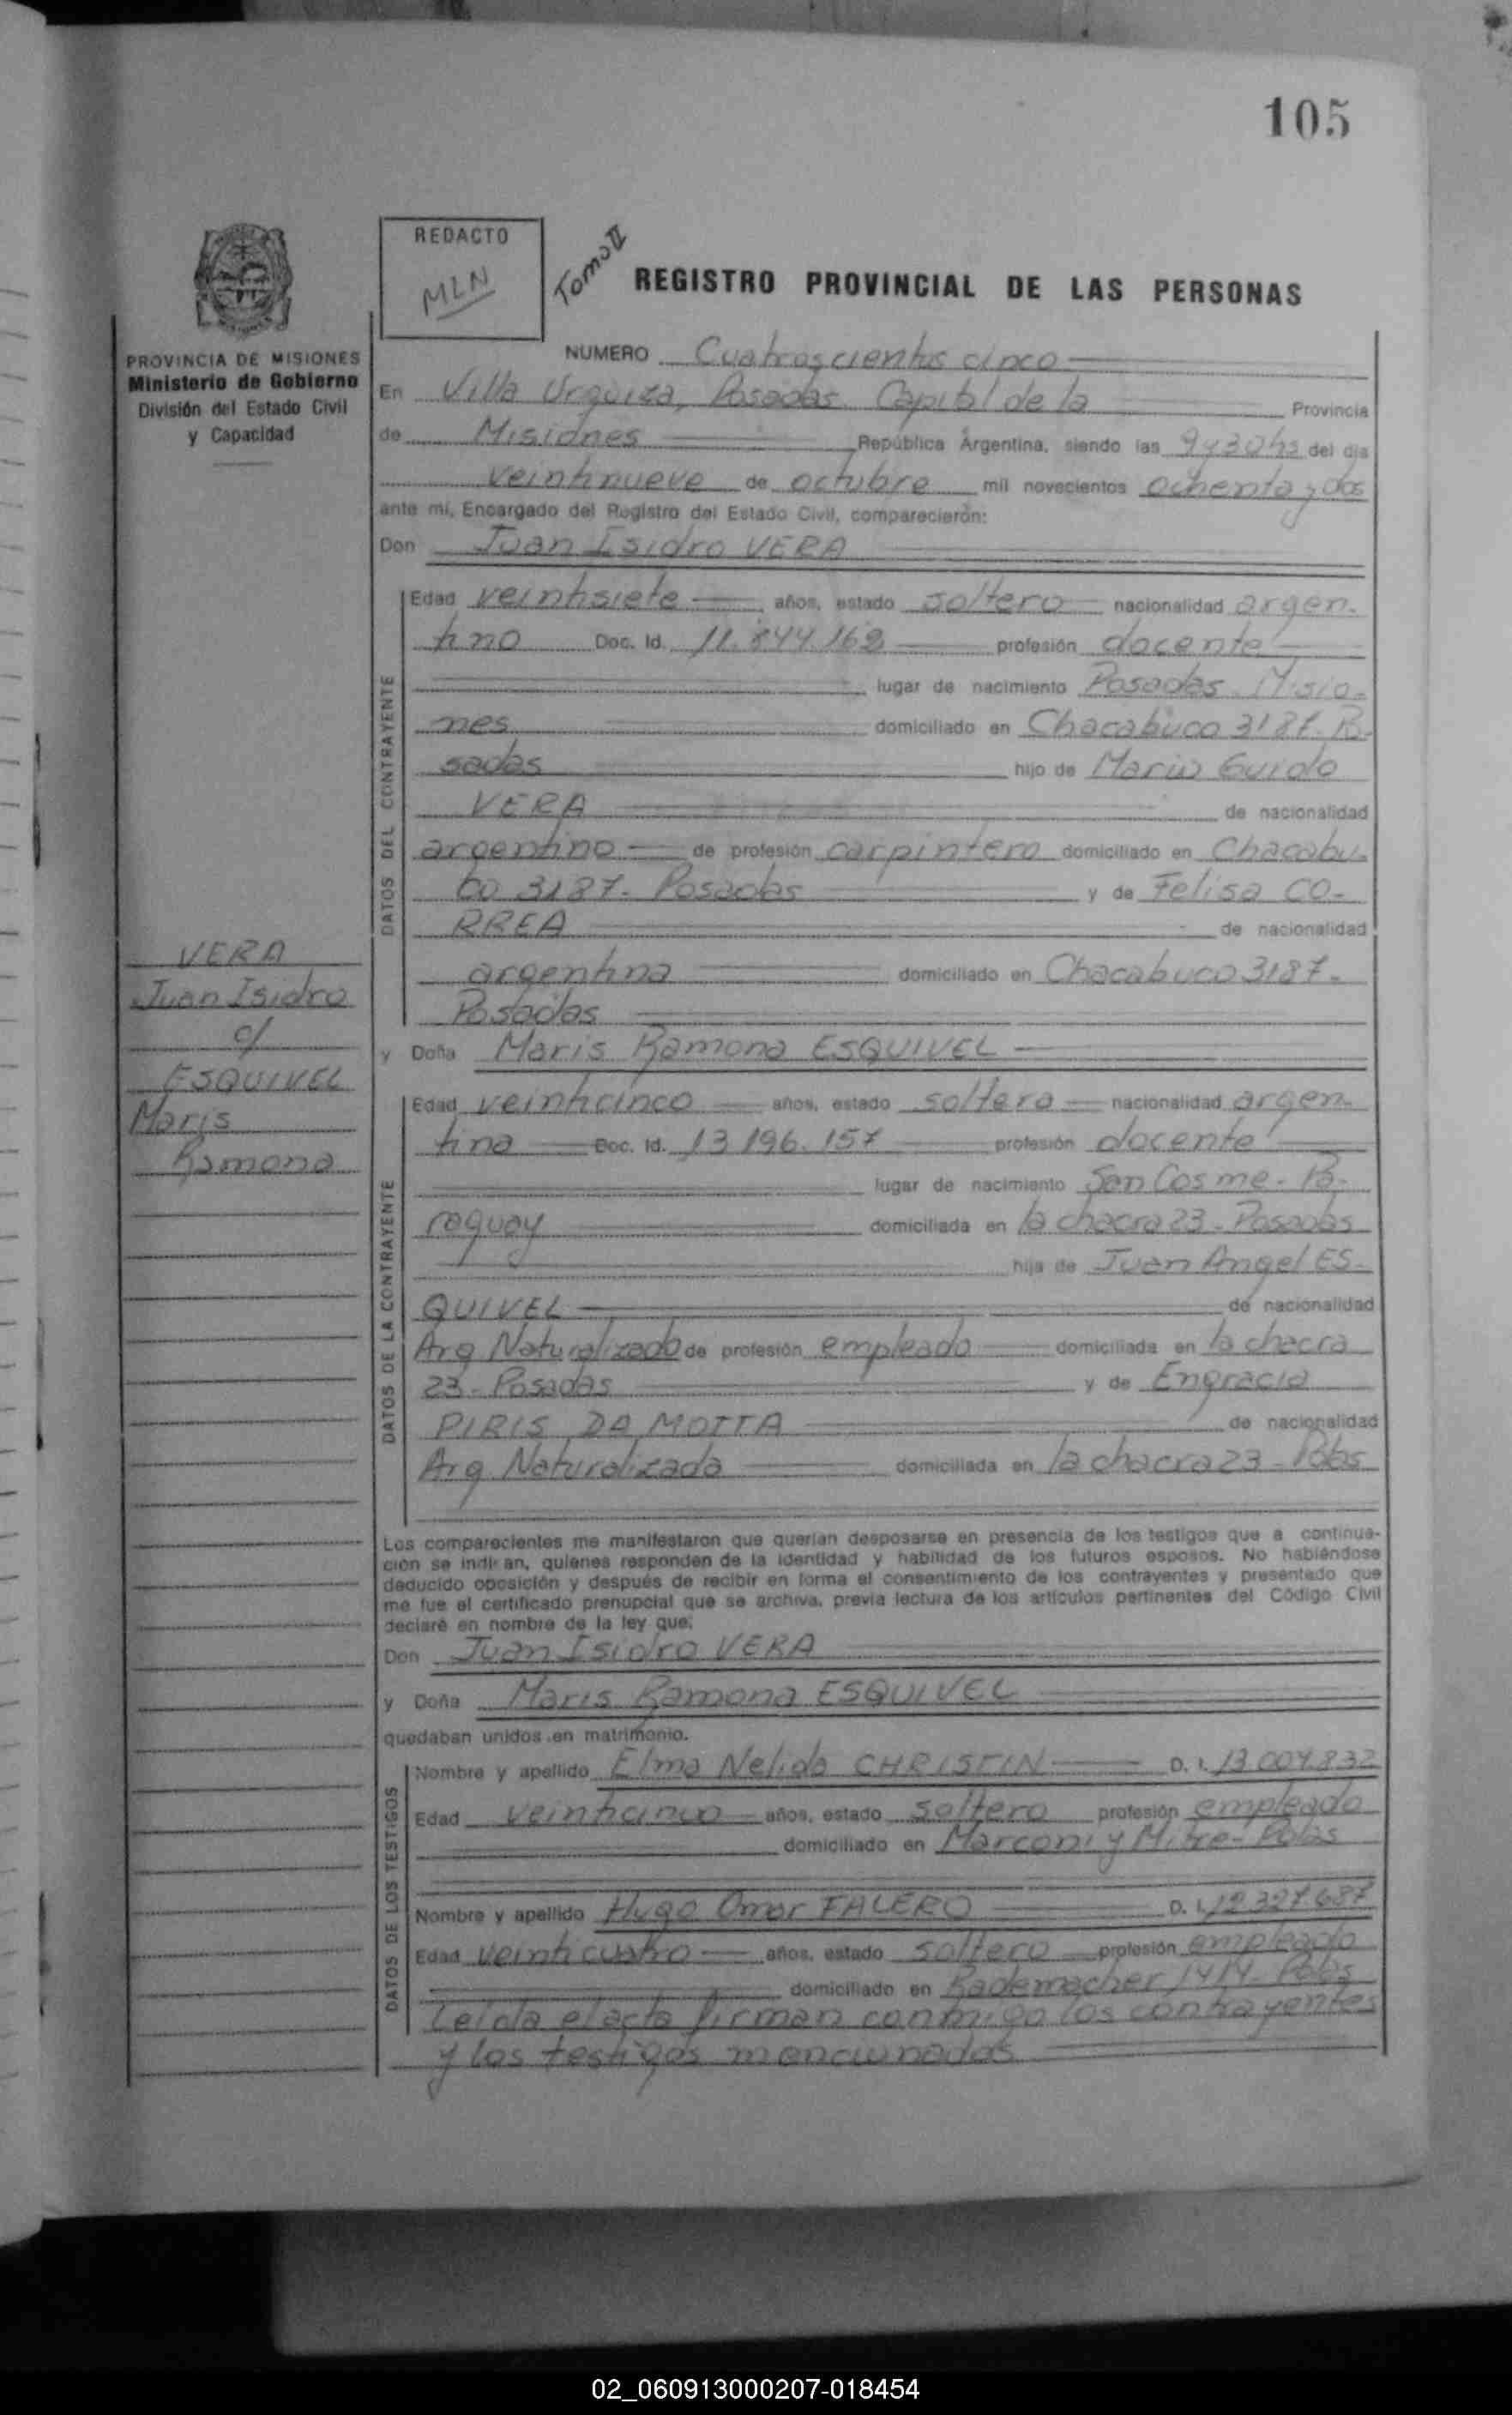 105
REDACTO
MLN
Tomo II
REGISTRO PROVINCIAL DE LAS PERSONAS
PROVINCIA DE MISIONES
Ministerio de Gobierno
División del Estado Civil
y Capacidad
NUMERO Cuatroscientos cinco
En Villa Urquiza, Posadas Capital de la Provincia
de Misiones República Argentina, siendo las 9y30hs del día
veintinueve de octubre mil novecientos ochenta y dos
ante mí, Encargado del Registro del Estado Civil, comparecieron:
Don Juan Isidro VERA
DATOS DEL CONTRAYENTE
Edad veintisiete años, estado soltero nacionalidad argen-
tino Doc. Id. 11.844.162 profesión docente
lugar de nacimiento Posadas Misio-
nes domiciliado en Chacabuco 3187- Po-
sadas hijo de Mario Guido
VERA de nacionalidad
argentino de profesión carpintero domiciliado en Chacabu-
co 3187- Posadas y de Felisa CO-
RREA de nacionalidad
argentina domiciliado en Chacabuco 3187-
Posadas
VERA
Juan Isidro
c/
ESQUIVEL
Maris
Ramona
y Doña Maris Ramona ESQUIVEL
DATOS DE LA CONTRAYENTE
Edad veinticinco años, estado soltera nacionalidad argen-
tina Doc. Id. 13.196.157 profesión docente
lugar de nacimiento San Cosme- Pa-
raguay domiciliada en la chacra 23- Posadas
hija de Juan Angel ES-
QUIVEL de nacionalidad
Arg Naturalizado de profesión empleado domiciliada en la chacra
23- Posadas y de Engracia
PIRIS DA MOTTA de nacionalidad
Arg Naturalizada domiciliada en la chacra 23- Pdas
Los comparecientes me manifestaron que querían desposarse en presencia de los testigos que a continua-
ción se indi an, quienes responden de la identidad y habilidad de los futuros esposos. No habiéndose
deducido oposición y después de recibir en forma el consentimiento de los contrayentes y presentado que
me fue el certificado prenupcial que se archiva, previa lectura de los artículos pertinentes del Código Civil
declaré en nombre de la ley que:
Don Juan Isidro VERA
y Doña Maris Ramona ESQUIVEL
quedaban unidos en matrimonio.
DATOS DE LOS TESTIGOS
Nombre y apellido Elma Nelida CHRISTIN D. I. 13.004.832
Edad veinticinco años, estado soltero profesión empleado
domiciliado en Marconi y Mitre- Pdas
Nombre y apellido Hugo Omar FALERO D. I. 12.327.687
Edad veinticuatro años, estado soltero profesión empleado
domiciliado en Rademacher 1414- Pdas
Leida el acta firman conmigo los contrayentes
y los testigos mencionados
02_060913000207-018454